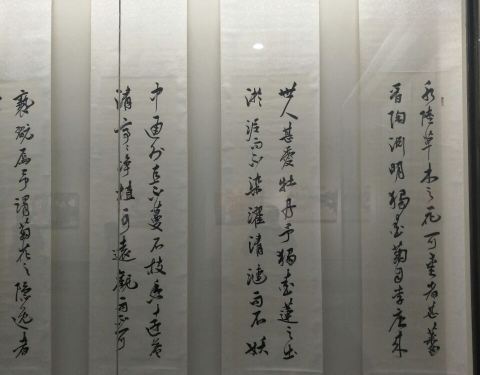 水陸草木之花可愛者甚蕃
晋陶渊明獨愛菊自李唐来
世人甚愛牡丹予獨愛蓮之出
淤泥而不染濯清漣而不妖
中通外直不蔓不枝香遠益
清亭々淨植可遠觀而不可
褻玩焉予謂菊花之隐逸者